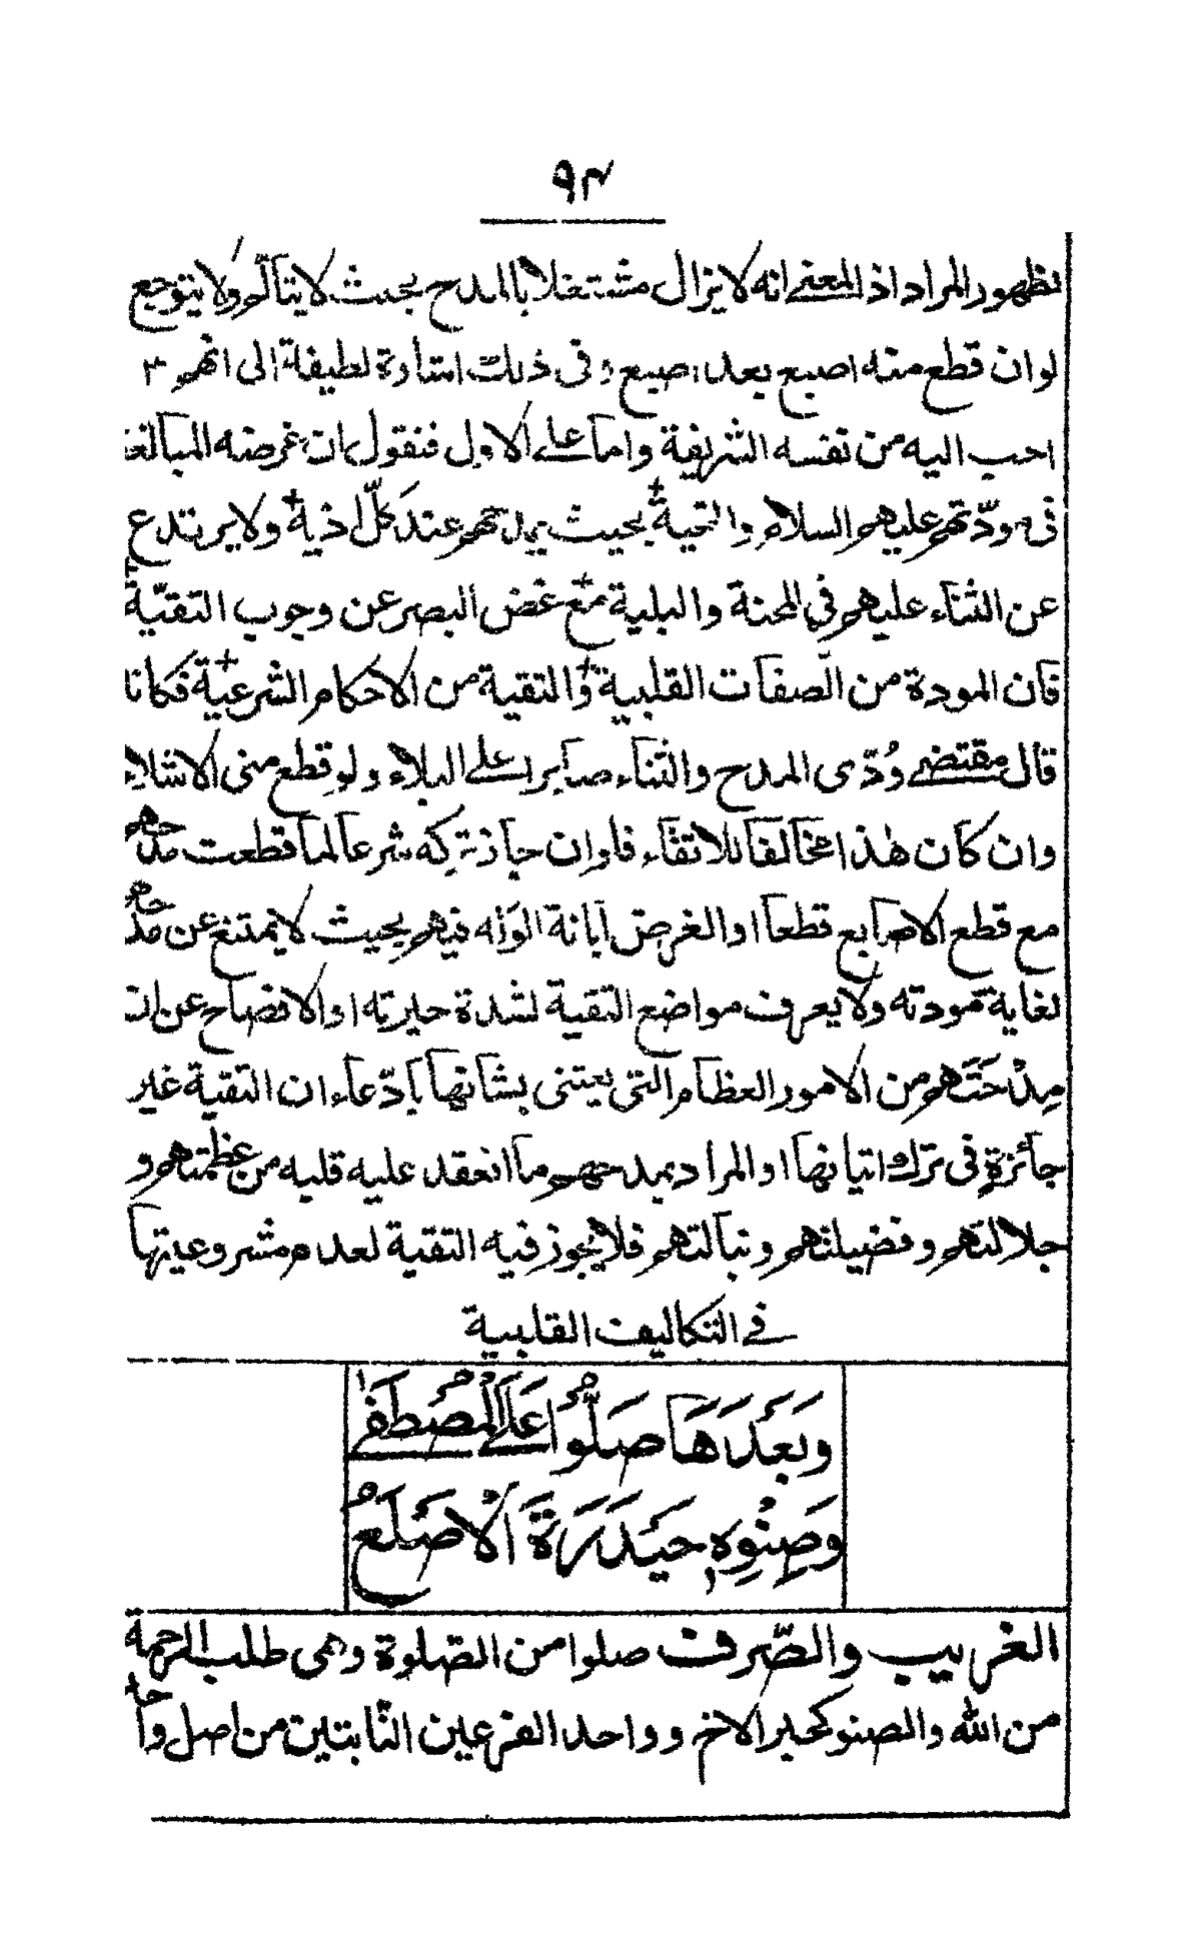 ٩٣
لظهور المراد اذ المعنى انه لا يزال مشتغلا بالمدح بحيث لا يتألم ولا يتوجع
لو ان قطع منه اصبع بعد اصبع وفى ذلك اشارة لطيفة الى انهم
احب اليه من نفسه الشريفة واما على الاول فنقول ان غرضه المبالغة
فى مودّتهم عليهم السلام والتحية بحيث يمدحهم عند كلّ اذية ولا يرتدع
عن الثناء عليهم فى المحنة والبلية مع غض البصر عن وجوب التقيّة
فان المودة من الصفات القلبية والتقية من الاحكام الشرعية فكانّه
قال مقتضى وُدّى المدح والثناء صابرا على البلاء ولو قطع منى الاشلاء
وان كان هذا مخالفا للاتقاء فاوان جاز تركه شرعا لما قطعت مدحهم
مع قطع الاصابع قطعا او الغرض ابانة الوَلَه فيهم بحيث لا يمتنع عن مدحهم
لغاية مودته ولا يعرف مواضع التقية لشدة حيرته او الافضاح عن ان
مِدْحَتَهم من الامور العظام التى يعتنى بشانها بادّعاء ان التقية غير
جائزة فى ترك اتيانها او المراد بمدحهم ما انعقد عليه قلبه من عظمتهم و
جلالتهم وفضيلتهم ونبالتهم فلا يجوز فيه التقية لعدم مشروعيتها
فى التكاليف القلبية
وَبَعْدَهَا صَلُّوْا عَلَى الْمُصْطَفٰى
وَصِنْوِهٖ حَيْدَرَةَ الْاَصْلَعُ
الغريب والصّرف صلوا من الصّلوة وهى طلب الرحمة
من الله والصنو كحبر الاخ و واحد الفرعين النّابتين من اصل واحد